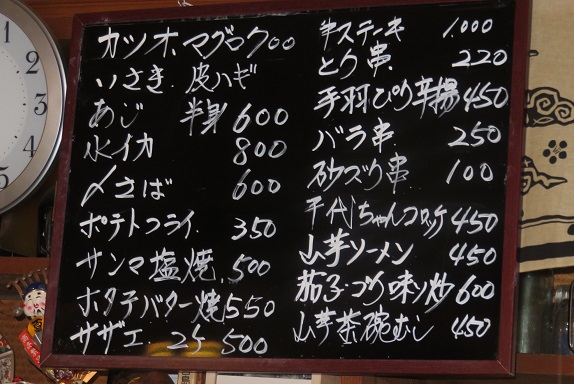 カツオ.マグロ 700
いさき.皮ハギ
あじ 半身 600
水イカ 800
〆さば 600
ポテトフライ. 350
サンマ塩焼 500
ホタテバター焼 550
サザエ. 2ケ 500
牛ステーキ 1.000
とり串. 220
手羽ぴり辛揚 450
バラ串 250
砂ズリ串 100
千代ちゃんコロッケ 450
山芋ソーメン 450
茄子.づめ味ソ炒 600
山芋茶碗むし 450
1
2
3
4
5